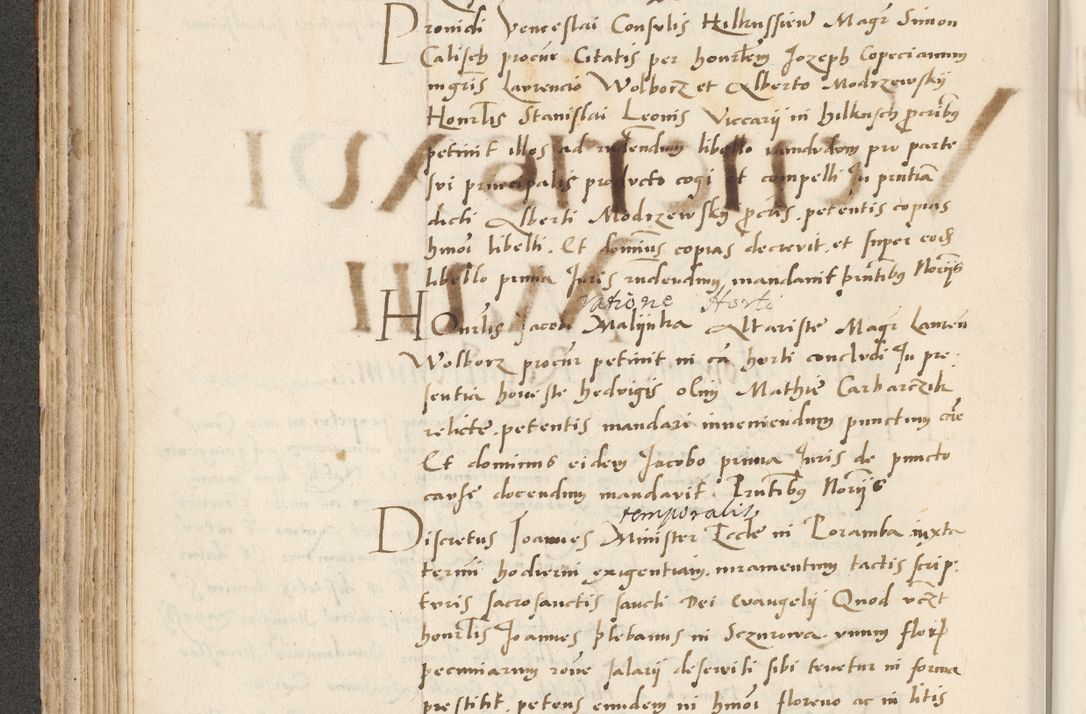 Providi Venceslai Consulis Hilkussien Magr Simon
Calisch procur Citatis per honrlem Jozeph Copecianum
mgris Laurencio Wolborz et Alberto Modrzewskÿ
Honrlis Stanislai Leonis Viccarii in hilkusch procribus
petiuit illos ad rndendum libello pro parte
sui principalis producto cogi et compelli Jn pntia
dicti Alberti Modrzewskÿ procris. petentis copias
hmoi libelli. Et dominus copias decrevit et super eod
libello prima Juris rndendum mandauit pntibus Noriis
ratione Horti
Honrlis Jacobi Malijnka Altariste Magr Lauren
Wolborz procur petiuit in ca horti concludi Jn pre-
sentia honeste hedvigis olim Mathie Carbarczik
relicte. petentis mandari inueniendum punctum cae
Et dominus eidem Jacobo prima Juris de puncto
cause docendum mandavit. Pntibus Noriis
temporalis
Discretus Joannes Minister Eccle in Poramba iuxta
termi hodierni exigentiam. iuramentum tactis scrip-
turis sacrosanctis sancti Dei Evangelÿ Quod
honrlis Joannes plebanus in Sczurowa unum flor
pecuniarum rone salarÿ deseruiti sibi tenetur in forma
prestitit. petens eundem in hmoi floreno ac in litis